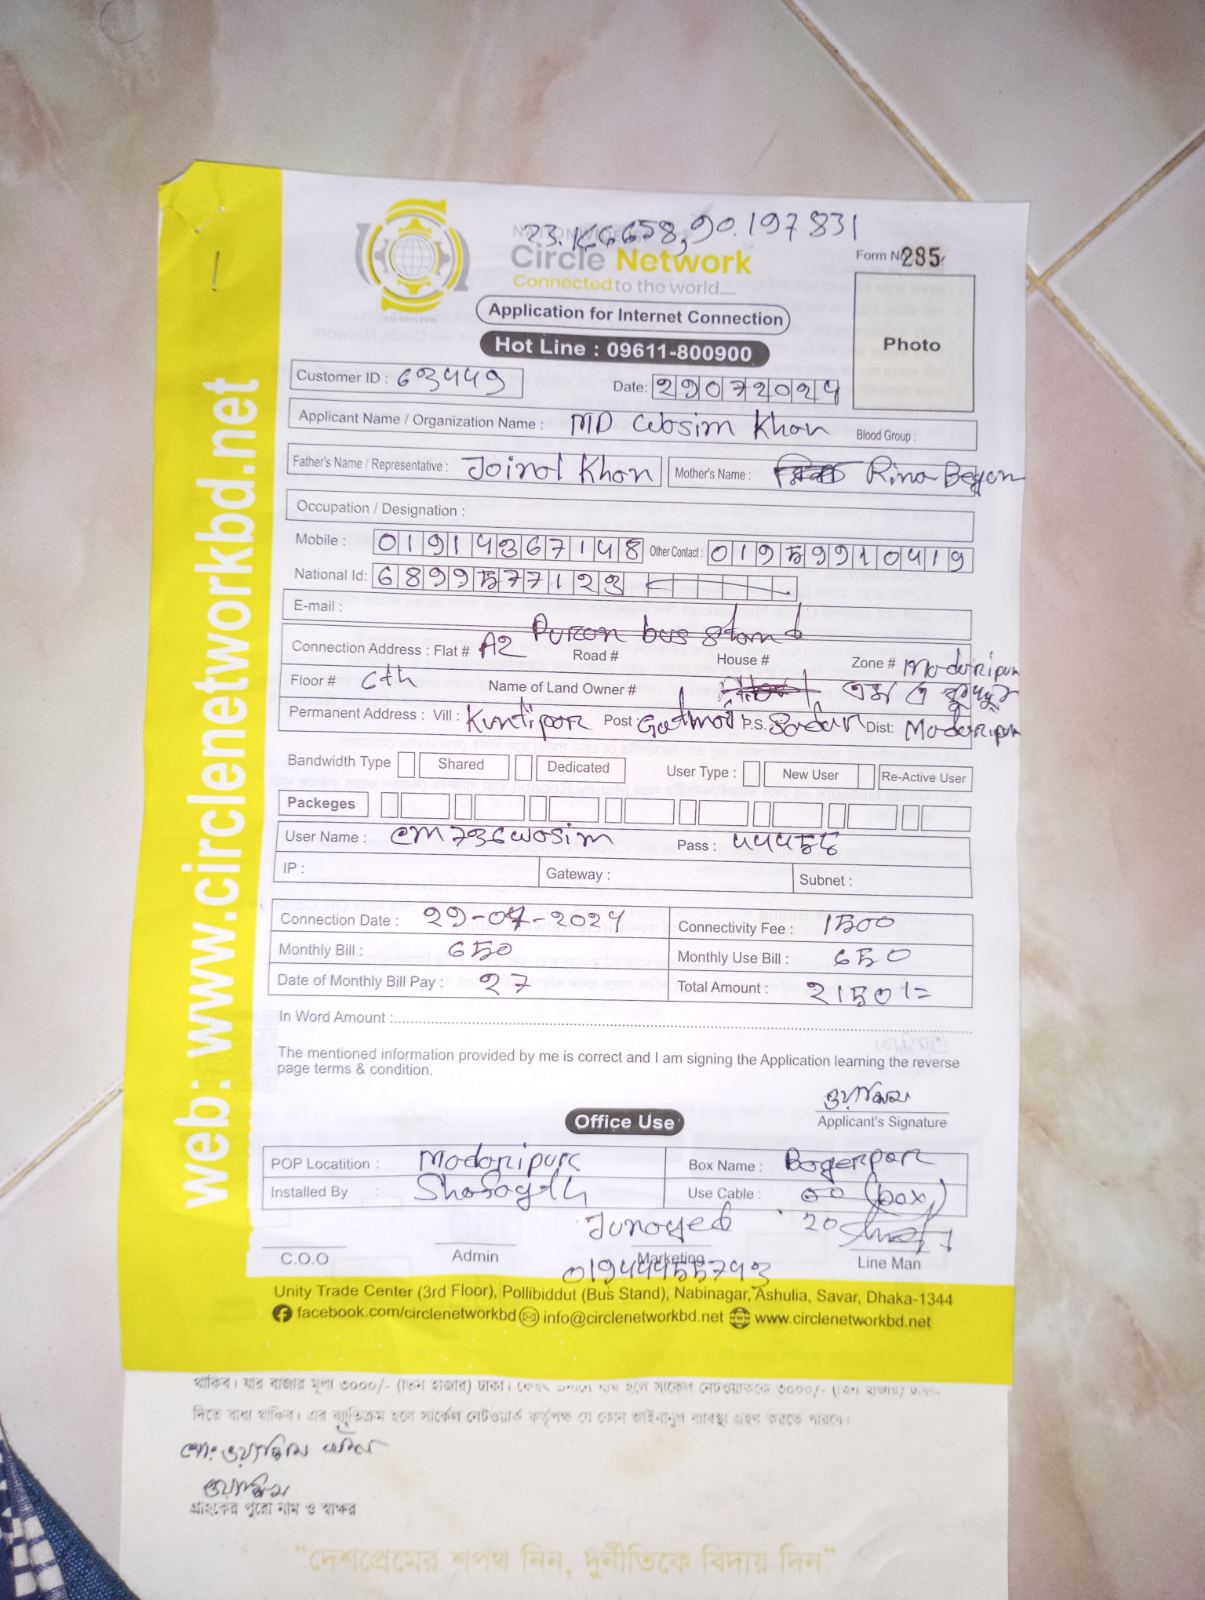 23.166658,90.197831
Circle Network
Connected to the world.....
Form No 285
Photo
Application for Internet Connection
Hot Line : 09611-800900
Customer ID : 63449
Date: 29072024
Applicant Name / Organization Name : MD Wosim Khan
Blood Group :
Father's Name / Representative : Joinol Khan Mother's Name : Rina Begom
Occupation / Designation :
Mobile : 01914367148 Other Contact : 01959910419
National Id: 6899577123
E-mail :
Puran bus stand
Connection Address : Flat # A2 Road # House # Zone # Madaripur
Floor # 6th Name of Land Owner #
Permanent Address : Vill : Kuntipar Post P.S. Sadar Dist: Madaripur
Bandwidth Type Shared Dedicated User Type : New User Re-Active User
Packeges
User Name : CM736wosim Pass : 44455
IP : Gateway : Subnet :
Connection Date : 29-07-2024 Connectivity Fee : 1500
Monthly Bill : 650 Monthly Use Bill : 650
Date of Monthly Bill Pay : 27 Total Amount : 2150/=
In Word Amount :
The mentioned information provided by me is correct and I am signing the Application learning the reverse
page terms & condition.
ওয়াসিম
Applicant's Signature
Office Use
POP Locatition : Madaripur Box Name : Bagerpar
Installed By : Use Cable : 00 (box)
Junayed 20
C.O.O Admin Marketing Line Man
01944455743
Unity Trade Center (3rd Floor), Pollibiddut (Bus Stand), Nabinagar, Ashulia, Savar, Dhaka-1344
facebook.com/circlenetworkbd info@circlenetworkbd.net www.circlenetworkbd.net
web: www.circlenetworkbd.net
থাকিব। যার বাজার মূল্য ৩০০০/- (তিন হাজার) টাকা।
দিতে বাধ্য থাকিব। এর ব্যতিক্রম হলে সার্কেল নেটওয়ার্ক কর্তৃপক্ষ যে কোন আইনানুগ ব্যবস্থা গ্রহণ করতে পারবে।
মোঃ ওয়াসিম খান
ওয়াসিম
গ্রাহকের পুরো নাম ও স্বাক্ষর
“দেশপ্রেমের শপথ নিন, দুর্নীতিকে বিদায় দিন”